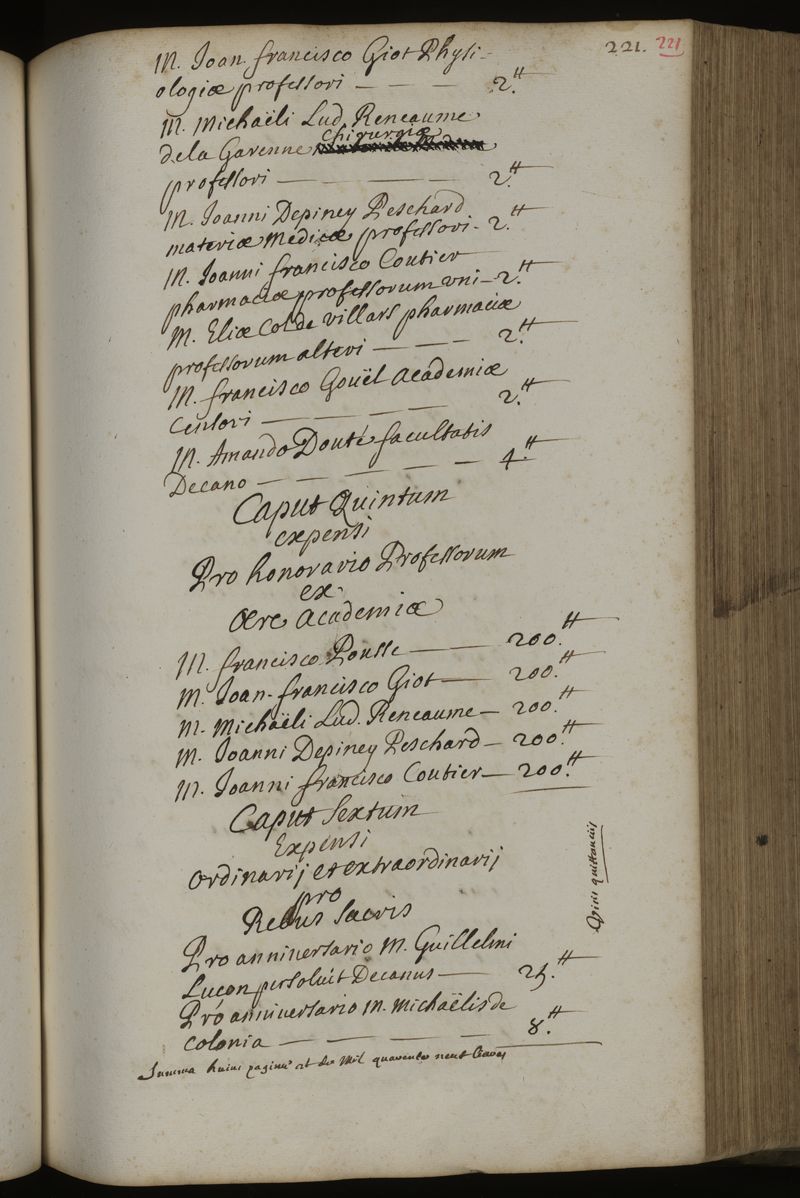 221. 221
M. Joan. francisco Giot Physi-
ologiæ professori — — — 2.tt
M. Michaëli Lud. Reneaume
Chirurgiæ
dela Garenne
professori — — — 2.tt
M. Joanni Depiney Peschard
materiæ Medicæ professori - 2.tt
M. Joanni francisco Coutier
pharmaciæ professorum uni - 2.tt
M. Eliæ Col de villars pharmaciæ
professorum alteri — — — 2.tt
M. francisco Gouël Academiæ
Censori — — — — 2.tt
M. Amando Douté facultatis
Decano — — — — — 4.tt
Caput Quintum
expensi
Pro honorario Professorum
ex
Ære Academiæ
M. francisco Pousse — 200.tt
M. Joan-francisco Giot — 200.tt
M. Michaëli Lud. Reneaume — 200.tt
M. Joanni Depiney Peschard — 200.tt
M. Joanni francisco Coutier — 200.tt
Caput Sextum
Expensi
Ordinarij et extraordinarij
pro
Rebus Sacris
Pro anniversario M. Guillelmi
Lucon persoluit Decanus — 25.tt
Pro anniversario M. Michaëlis de
Colonia — — — — 8.tt
Summa huius paginæ est de Mil quarente neuf livres
quittanciis